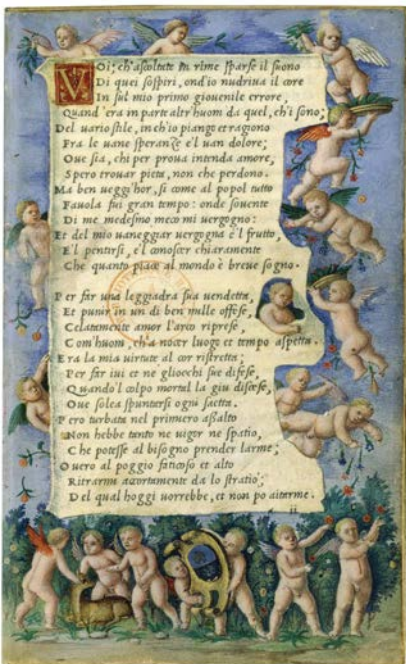 Voi; ch'ascoltate in rime sparse il suono
Di quei sospiri, ond'io nudriua il core
In sul mio primo giouenile errore,
Quand'era in parte altr'huom da quel, ch'i sono;
Del uario stile, in ch'io piango et ragiono
Fra le uane speranze e'l uan dolore;
Oue sia, chi per proua intenda amore,
Spero trouar pieta, non che perdono.
Ma ben ueggi hor, si come al popol tutto
Fauola fui gran tempo: onde souente
Di me medesmo meco mi uergogno:
Et del mio uaneggiar uergogna e'l frutto,
E'l pentirsi, e'l conoscer chiaramente
Che quanto piace al mondo è breue sogno.
Per far una leggiadra sua uendetta,
Et punir in un di ben mille offese,
Celatamente amor l'arco riprese,
Com'huom, ch'a nocer luogo et tempo aspetta.
Era la mia uirtute al cor ristretta;
Per far iui et ne gliocchi sue difese,
Quando'l colpo mortal la giu discese,
Oue solea spuntarsi ogni saetta.
Pero turbata nel primiero assalto
Non hebbe tanto ne uigor ne spatio,
Che potesse al bisogno prender larme;
Ouero al poggio faticoso et alto
Ritrarmi accortamente da lo stratio;
Del qual hoggi uorrebbe, et non po aitarme.
ii